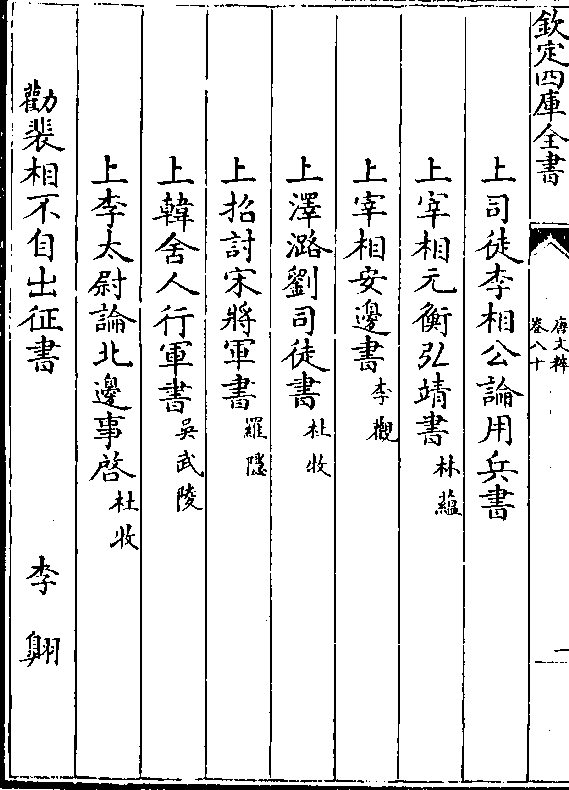 欽定四庫全書
唐文粹
卷八十
一
上司徒李相公論用兵書
上宰相元衡弘靖書 林藴
上宰相安邊書 李觀
上澤潞劉司徒書 杜牧
上招討宋將軍書 羅隱
上韓舍人行軍書 吳武陵
上李太尉論北邊事啓 杜牧
勸裴相不自出征書 李翺